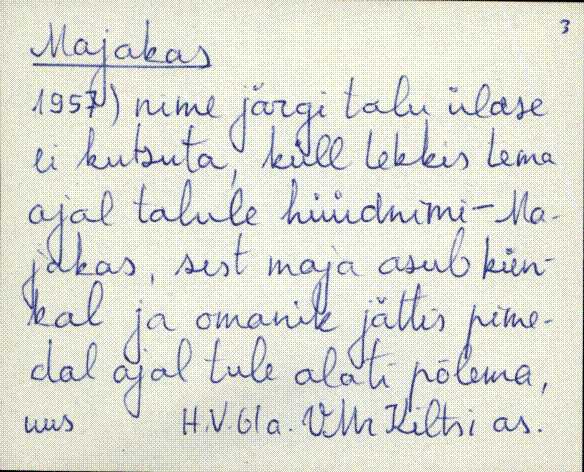 3
Majakas
1957) nime järgi talu üldse
ei kutsuta, küll tekkis tema
ajal talule hüüdnimi - Ma-
jakas, sest maja asub kün-
kal ja omanik jättis pime-
dal ajal tule alati põlema,
uus H.V. 61a. VMr Kiltsi as.